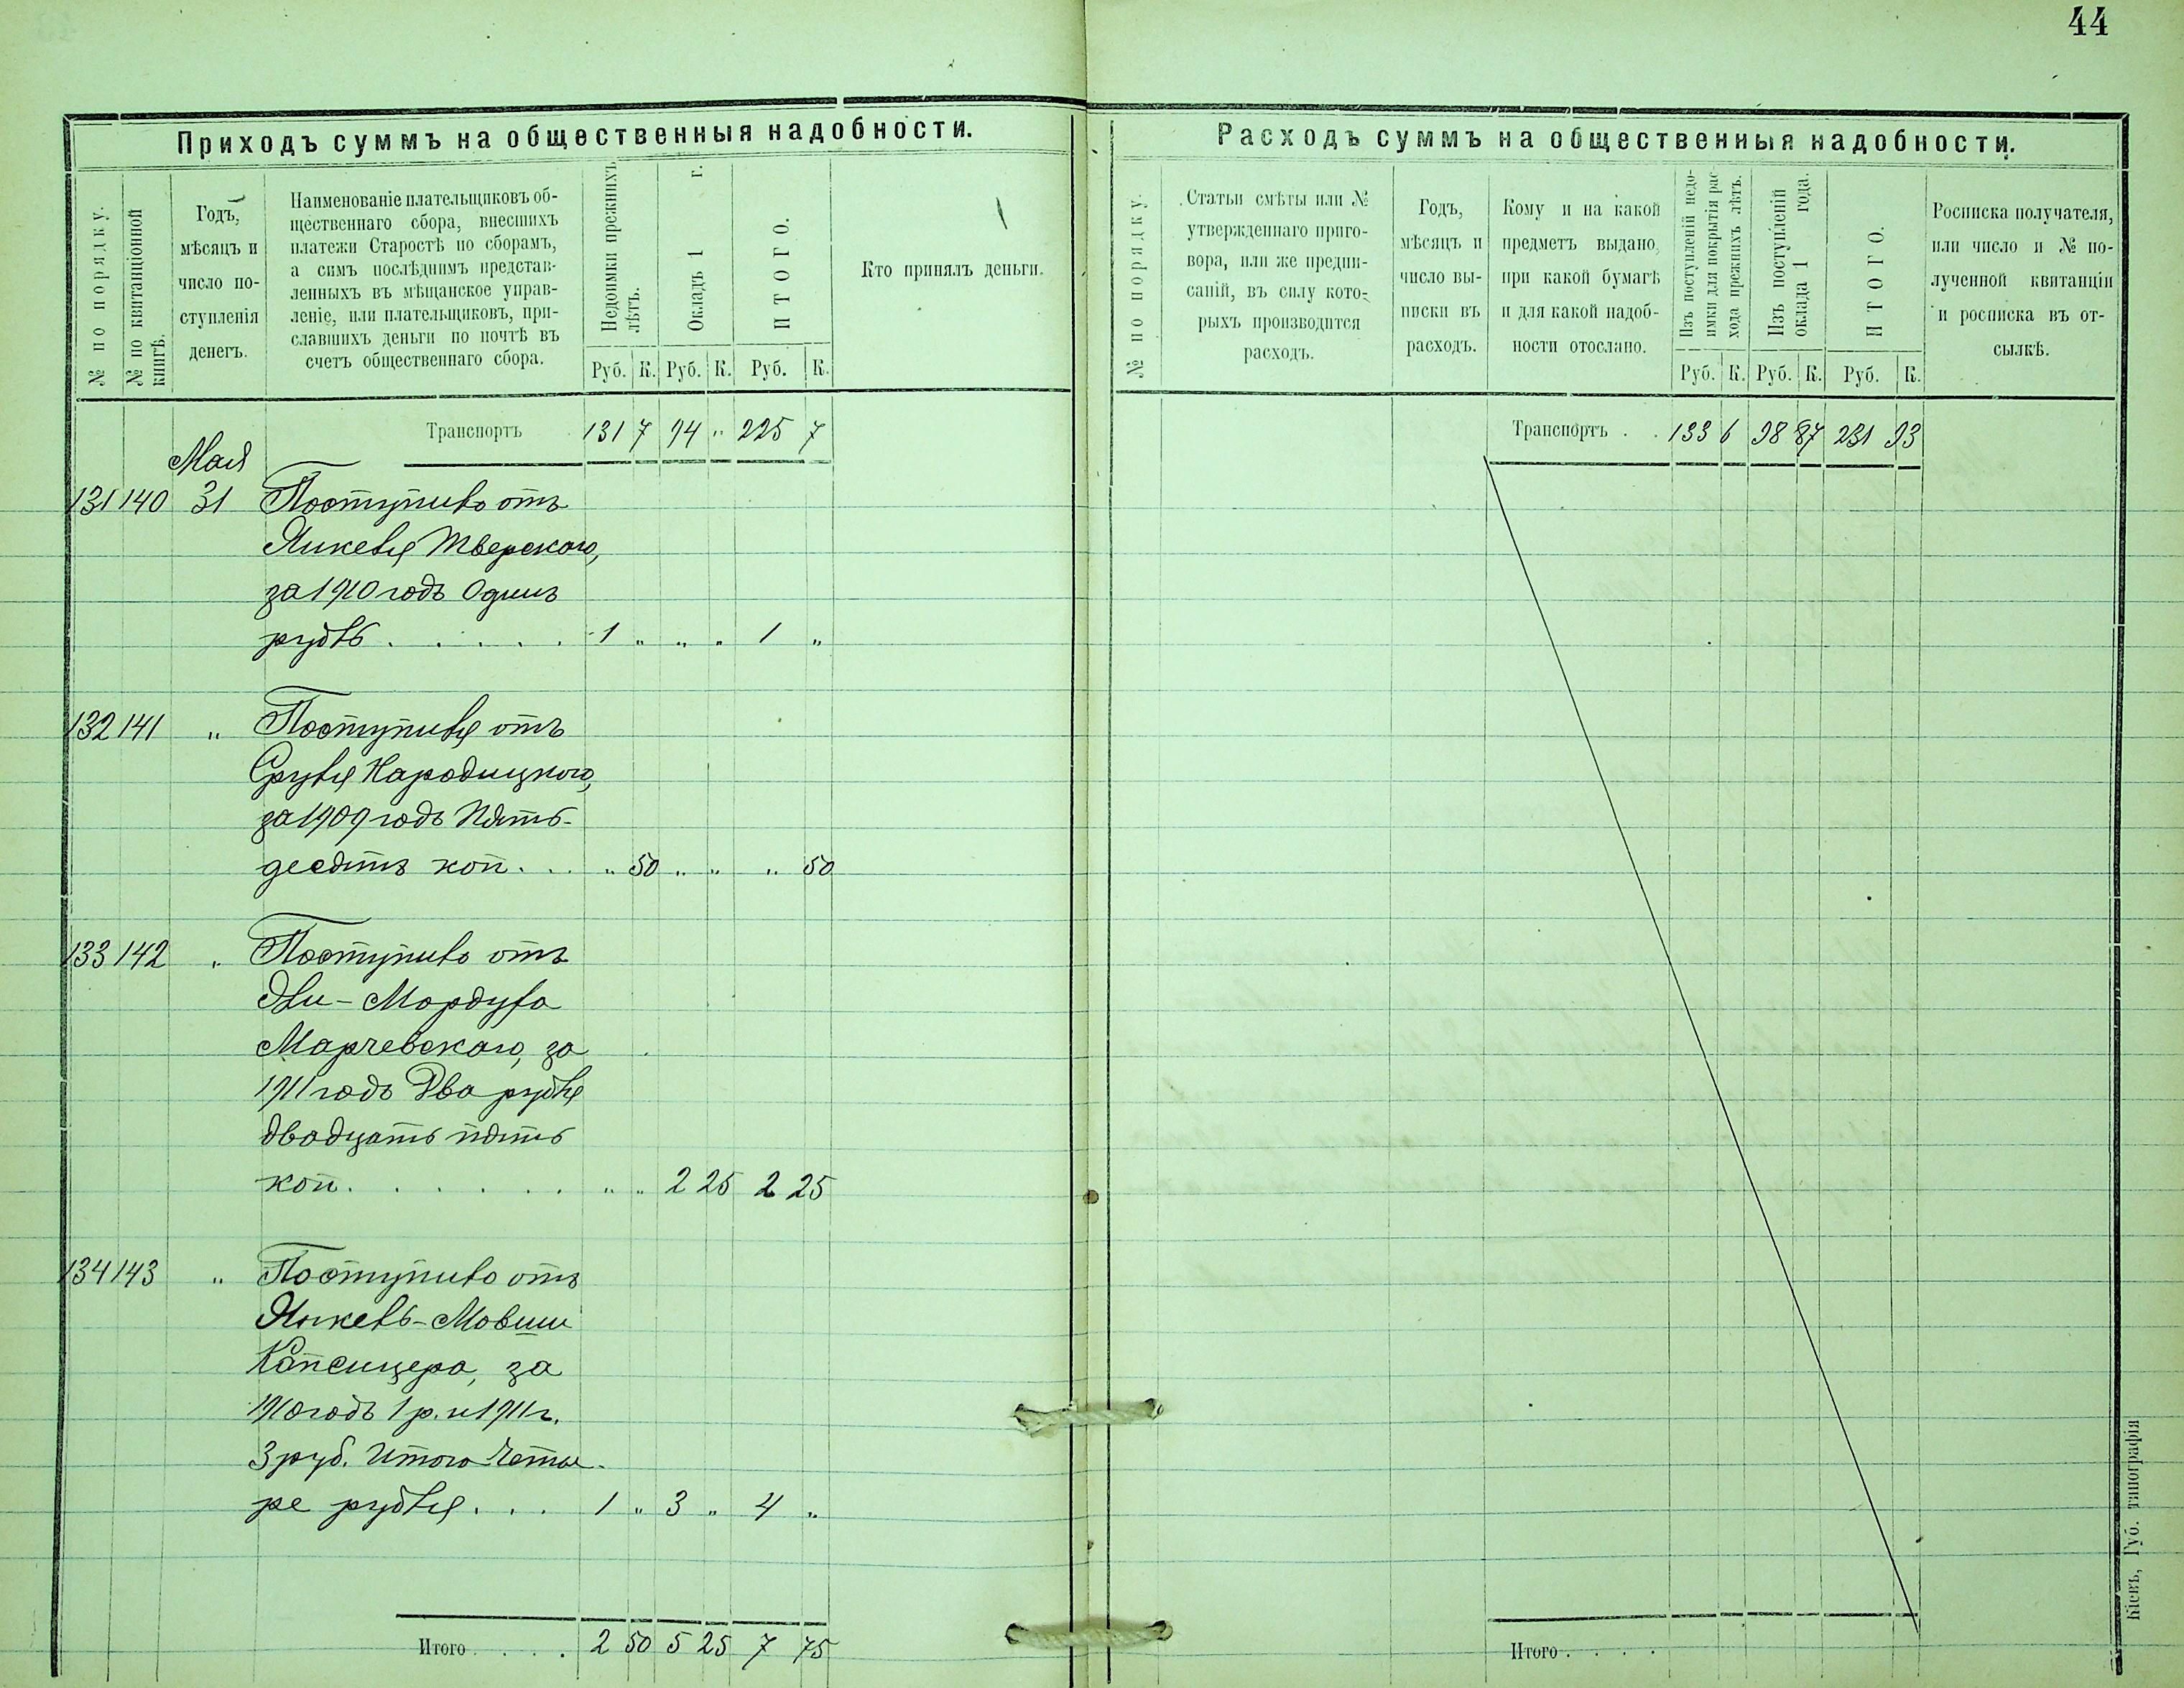 44
Приходъ суммъ на общественныя надобности.
№ по порядку.
№ по квитанціонной книгѣ.
Годъ,
мѣсяцъ и
число по-
ступленія
денегъ.
Наименованіе плательщиковъ об-
щественнаго сбора, внесшихъ
платежи Старостѣ по сборамъ,
а симъ послѣднимъ представ-
ленныхъ въ мѣщанское управ-
леніе, или плательщиковъ, при-
славшихъ деньги по почтѣ въ
счетъ общественнаго сбора.
Недоимки прежнихъ
лѣтъ.
Окладъ 1 г.
ИТОГО.
Руб. К. Руб. К. Руб. К.
Кто принялъ деньги.
Транспортъ 131 7 94 " 225 7
Мая
131 140 31 Поступило отъ
Янкеля Тверского,
за 1910 годъ Одинъ
рубль . . . . . 1 " " " 1 "
132 141 " Поступило отъ
Сруля Народицкого,
за 1909 годъ Пять-
десятъ коп. . . " 50 " " " 50
133 142 " Поступило отъ
Эли-Мордуха
Марчевскаго, за
1911 годъ Два рубля
двадцать пять
коп. . . . . . . " " 2 25 2 25
134 143 " Поступило отъ
Янкель-Мовши
Капсицера, за
1910 годъ 1 р. и 1911 г.
3 руб. Итого Четы-
ре рубля . . . 1 " 3 " 4 "
Итого . . . . 2 50 5 25 7 75
Расходъ суммъ на общественныя надобности.
№ по порядку.
Статьи смѣты или №
утвержденнаго приго-
вора, или же предпи-
саній, въ силу кото-
рыхъ производится
расходъ.
Годъ,
мѣсяцъ и
число вы-
писки въ
расходъ.
Кому и на какой
предметъ выдано,
при какой бумагѣ
и для какой надоб-
ности отослано.
Изъ поступленій недо-
имки для покрытія рас-
хода прежнихъ лѣтъ.
Изъ поступленій
оклада 1 года.
ИТОГО.
Руб. К. Руб. К. Руб. К.
Росписка получателя,
или число и № по-
лученной квитанціи
и росписка въ от-
сылкѣ.
Транспортъ . . 133 6 98 87 231 93
Итого . . . .
Кіевъ, Губ. типографія